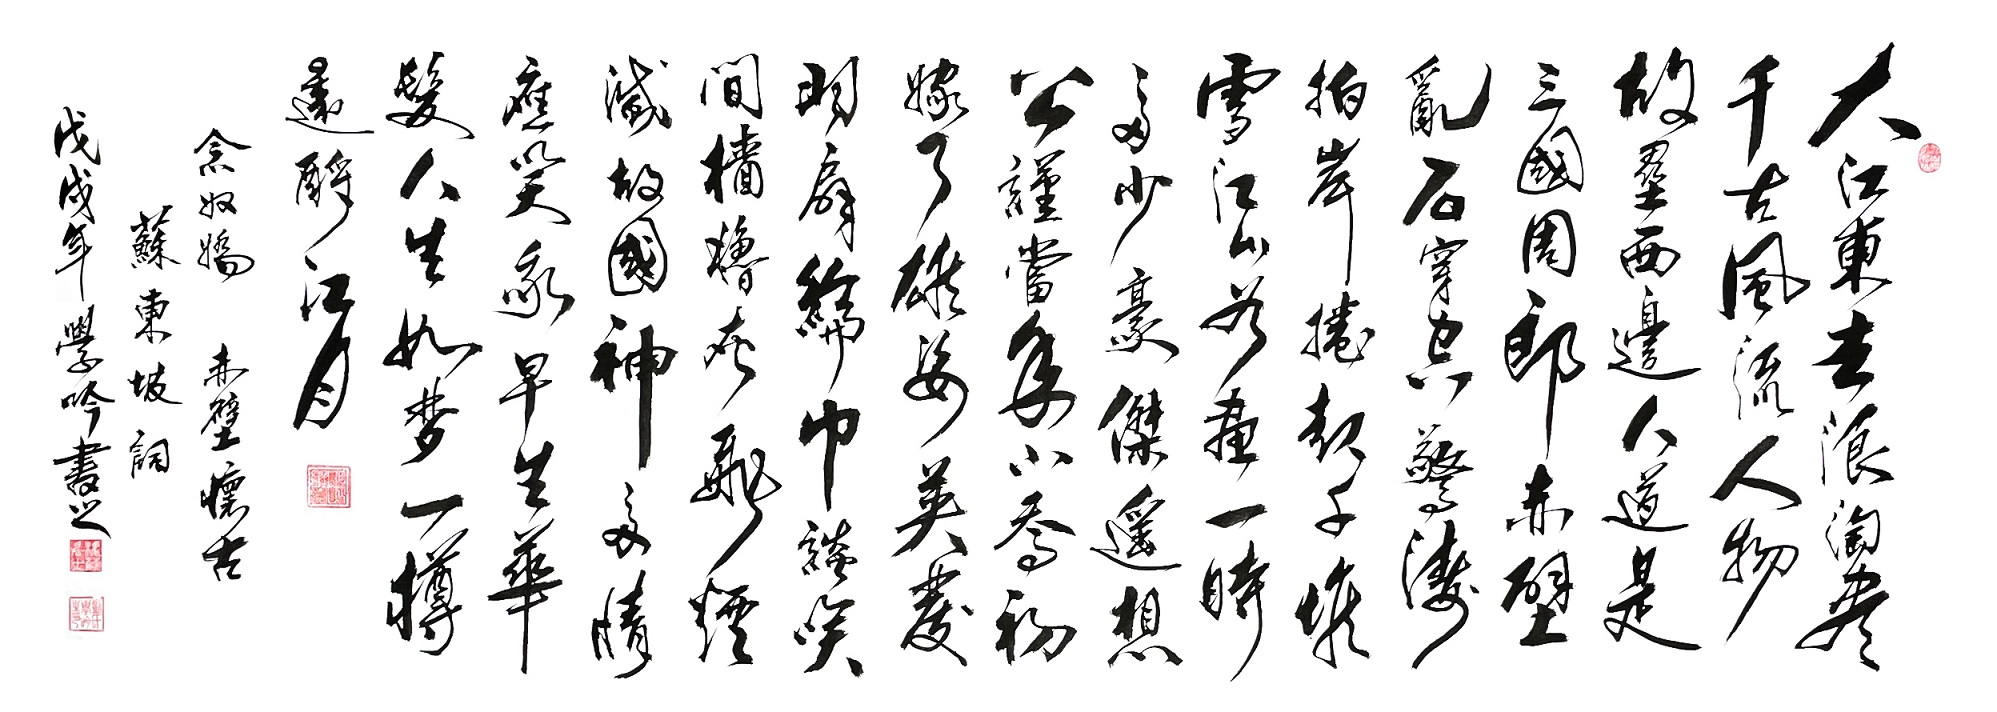 大江東去浪淘盡
千古風流人物
故壘西邊人道是
三國周郎赤壁
亂石穿空驚濤
拍岸捲起千堆
雪江山如畫一時
多少豪傑遙想
公謹當年小喬初
嫁了雄姿英發
羽扇綸巾談笑
間檣櫓灰飛煙
滅故國神多情
應笑我早生華
髮人生如梦一樽
還酹江月
念奴嬌 赤壁懷古
蘇東坡詞
戊戌年 學吟書之